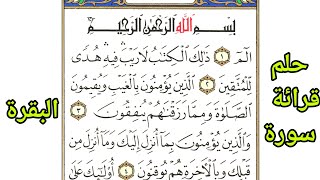 بِسْمِ اللَّهِ الرَّحْمَٰنِ الرَّحِيمِ
الٓمٓ ١ ذَٰلِكَ الْكِتَٰبُ لَا رَيْبَ فِيهِ هُدًى
لِّلْمُتَّقِينَ ٢ الَّذِينَ يُؤْمِنُونَ بِالْغَيْبِ وَيُقِيمُونَ
الصَّلَوٰةَ وَمِمَّا رَزَقْنَٰهُمْ يُنفِقُونَ ٣
وَالَّذِينَ يُؤْمِنُونَ بِمَا أُنزِلَ إِلَيْكَ وَمَا أُنزِلَ مِن
قَبْلِكَ وَبِالْآخِرَةِ هُمْ يُوقِنُونَ ٤ أُولَٰئِكَ عَلَىٰ
حلم
قرائة
سورة
البقرة